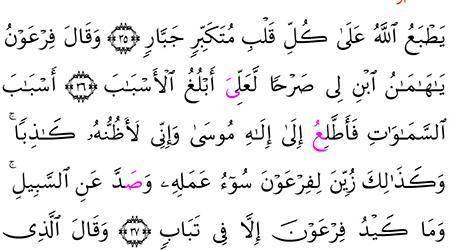 يَطْبَعُ ٱللَّهُ عَلَىٰ كُلِّ قَلْبِ مُتَكَبِّرٖ جَبَّارٖ ٣٥ وَقَالَ فِرْعَوْنُ
يَٰهَٰمَٰنُ ٱبْنِ لِي صَرْحٗا لَّعَلِّيَ أَبْلُغُ ٱلْأَسْبَٰبَ ٣٦ أَسْبَٰبَ
ٱلسَّمَٰوَٰتِ فَأَطَّلِعُ إِلَىٰٓ إِلَٰهِ مُوسَىٰ وَإِنِّي لَأَظُنُّهُۥ كَٰذِبٗاۚ
وَكَذَٰلِكَ زُيِّنَ لِفِرْعَوْنَ سُوٓءُ عَمَلِهِۦ وَصَدَّ عَنِ ٱلسَّبِيلِۚ
وَمَا كَيْدُ فِرْعَوْنَ إِلَّا فِي تَبَابٖ ٣٧ وَقَالَ ٱلَّذِي